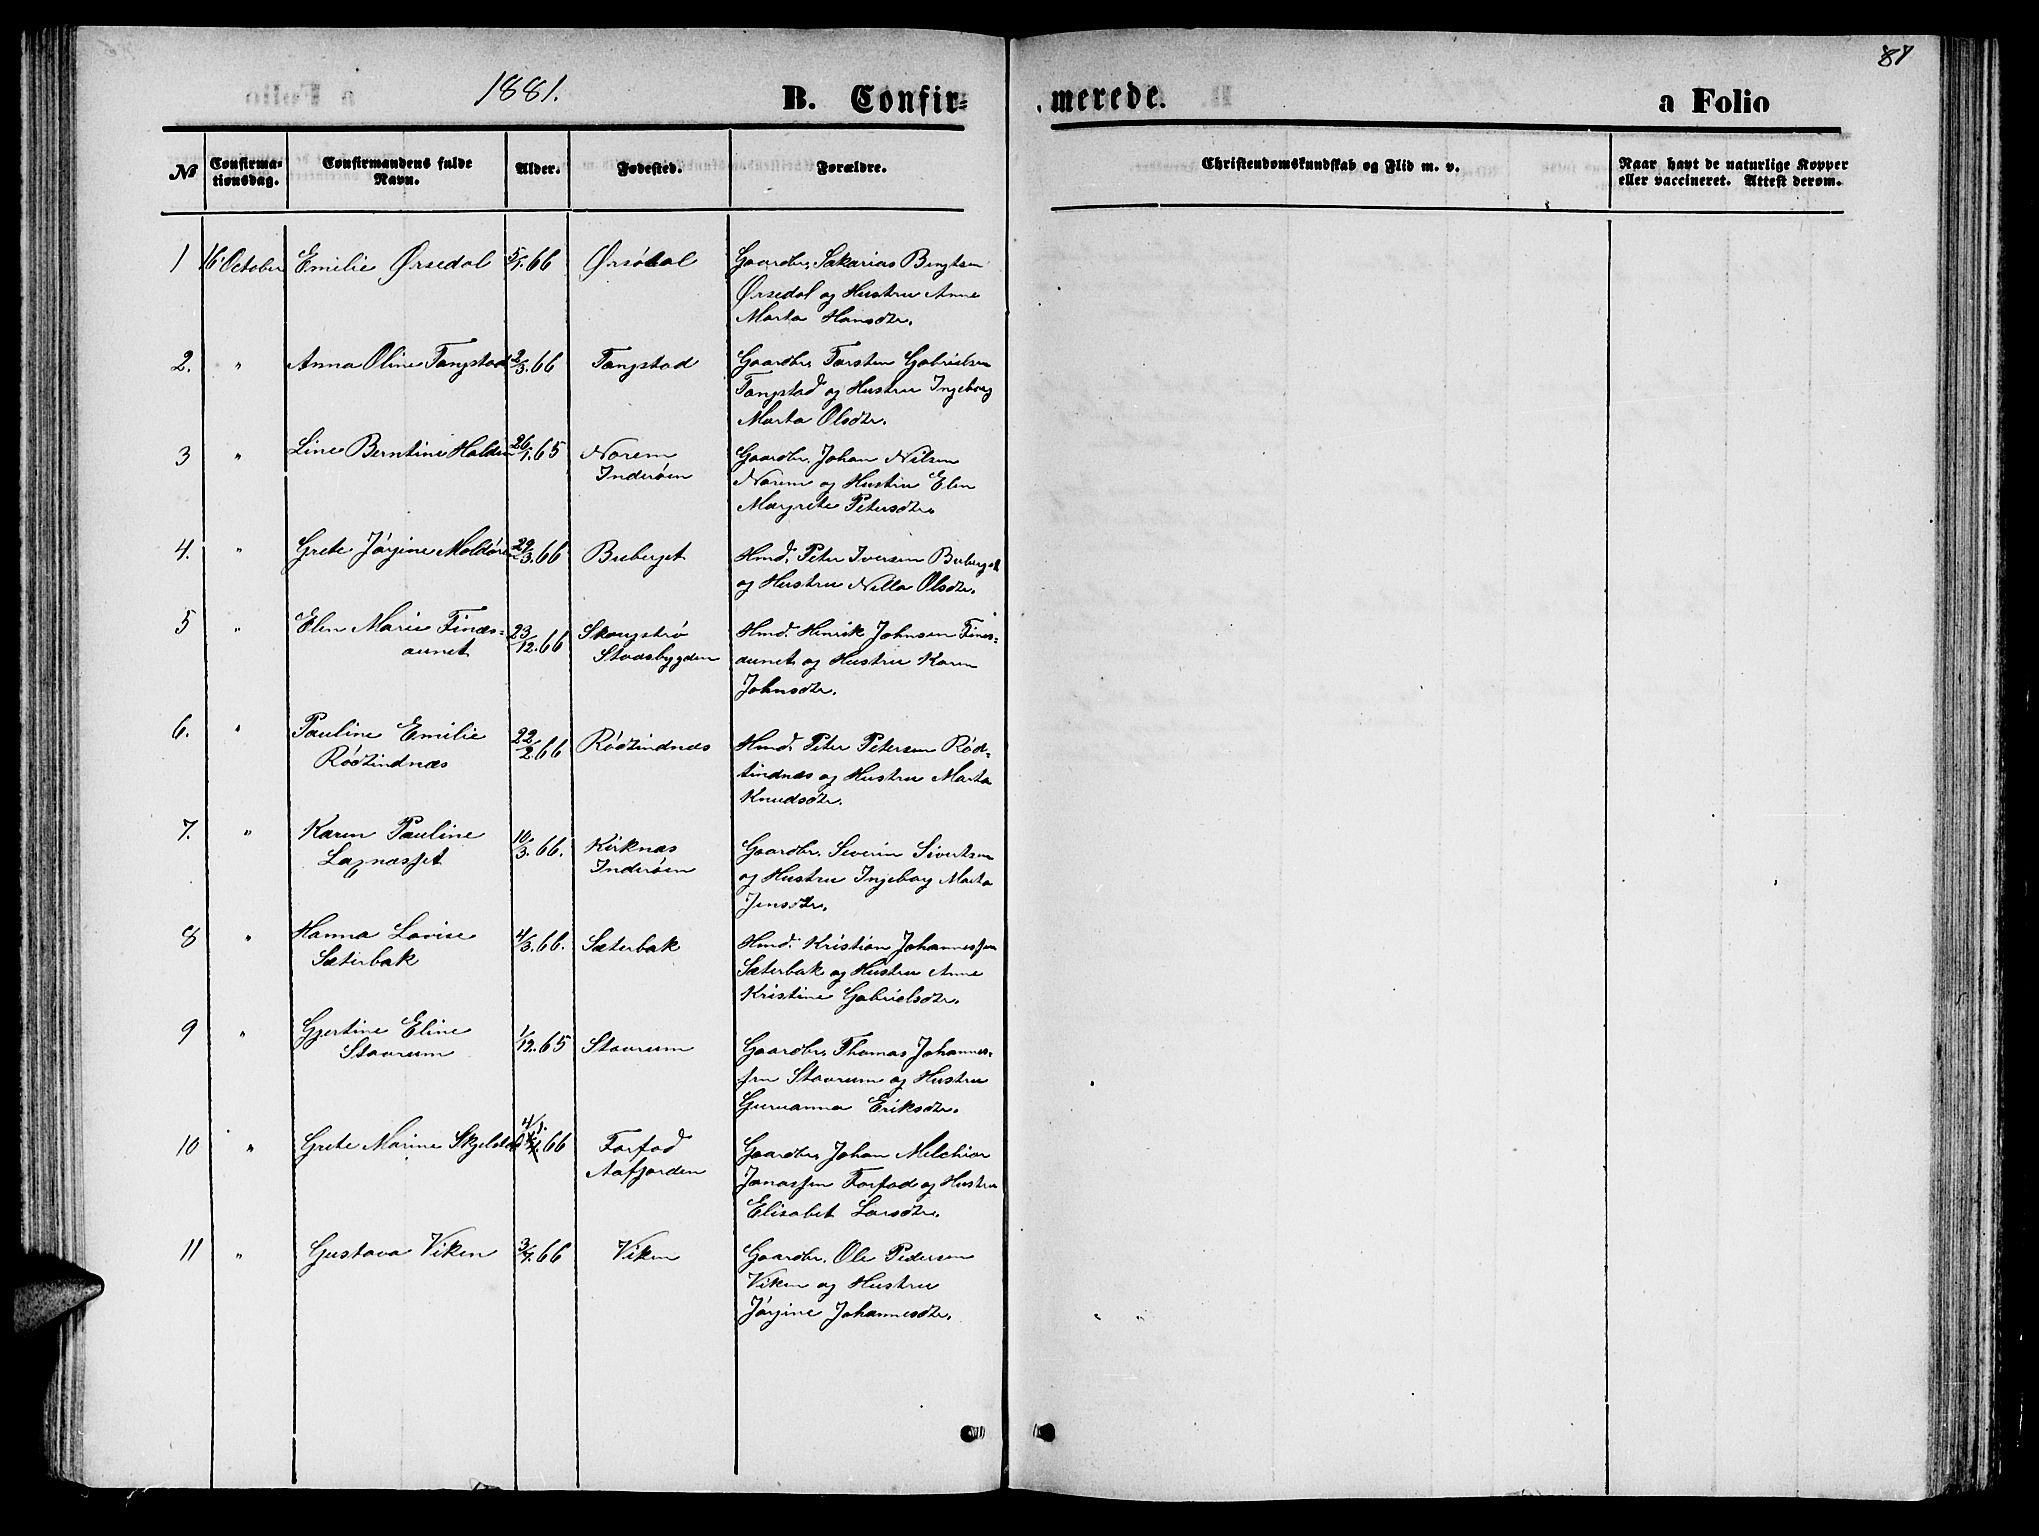 87
1881.
B. Confir=
merede.
a Folio
No
Confirma-
tionsdag.
Confirmandens fulde
Navn.
Alder.
Fødested.
Forældre.
Christendomskundskab og Flid m. v.
Naar havt de naturlige Kopper
eller vaccineret. Attest derom.
1 16 October Emilie Ørsedal 5/1.66 Ørsdal Gaardbr. Sakarias Bengtsen
Ørsedal og Hustru Anne
Marta Hansdtr.
2. " Anna Oline Tangstad 2/3.66 Tangstad Gaardbr. Torsten Gabrielsen
Tangstad og Hustru Ingeborg
Marta Olsdtr.
3 " Line Berntine Halden 26/1.65 Norem Gaardbr. Johan Nilsen
Inderøen Norem og Hustru Elen
Margrete Petersdtr.
4. " Grete Jørgine Moldøre 29/3.66 Buberget Hmd. Peter Iversen Buberget
og Hustru Nilla Olsdtr.
5 " Elen Marie Finæs- 23/12.66 Skaugstrø Hmd. Henrik Johnsen Fines-
aunet Stadsbygden aunet og Hustru Karen
Johnsdtr.
6. " Pauline Emilie 22/2.66 Rødtindnæs Hmd. Peter Petersen Rød-
Rødtindnæs tindnæs og Hustru Marta
Knudsdtr.
7. " Karen Pauline 10/3.66. Kirknæs Gaardbr. Severin Sivertsen
Laxnæsset Inderøen og Hustru Ingeborg Marta
Jensdtr.
8 " Hanna Lovise 4/3.66. Sæterbak Hmd. Kristian Johannessen
Sæterbak Sæterbak og Hustru Anne
Kristine Gabrielsdtr.
9 " Gjertine Eline 1/12.65 Stavrum Gaardbr. Thomas Johannes-
Stavrum sen Stavrum og Hustru
Guruanna Eriksdtr.
10 " Grete Marine Skjelstad 4/1.66 Forfod Gaardbr. Johan Melchior
Aafjorden Jonassen Forfod og Hustru
Elisabet Larsdtr.
11 " Gustava Viken 3/7.66 Viken Gaardbr. Ole Pedersen
Viken og Hustru
Jørgine Johannesdtr.